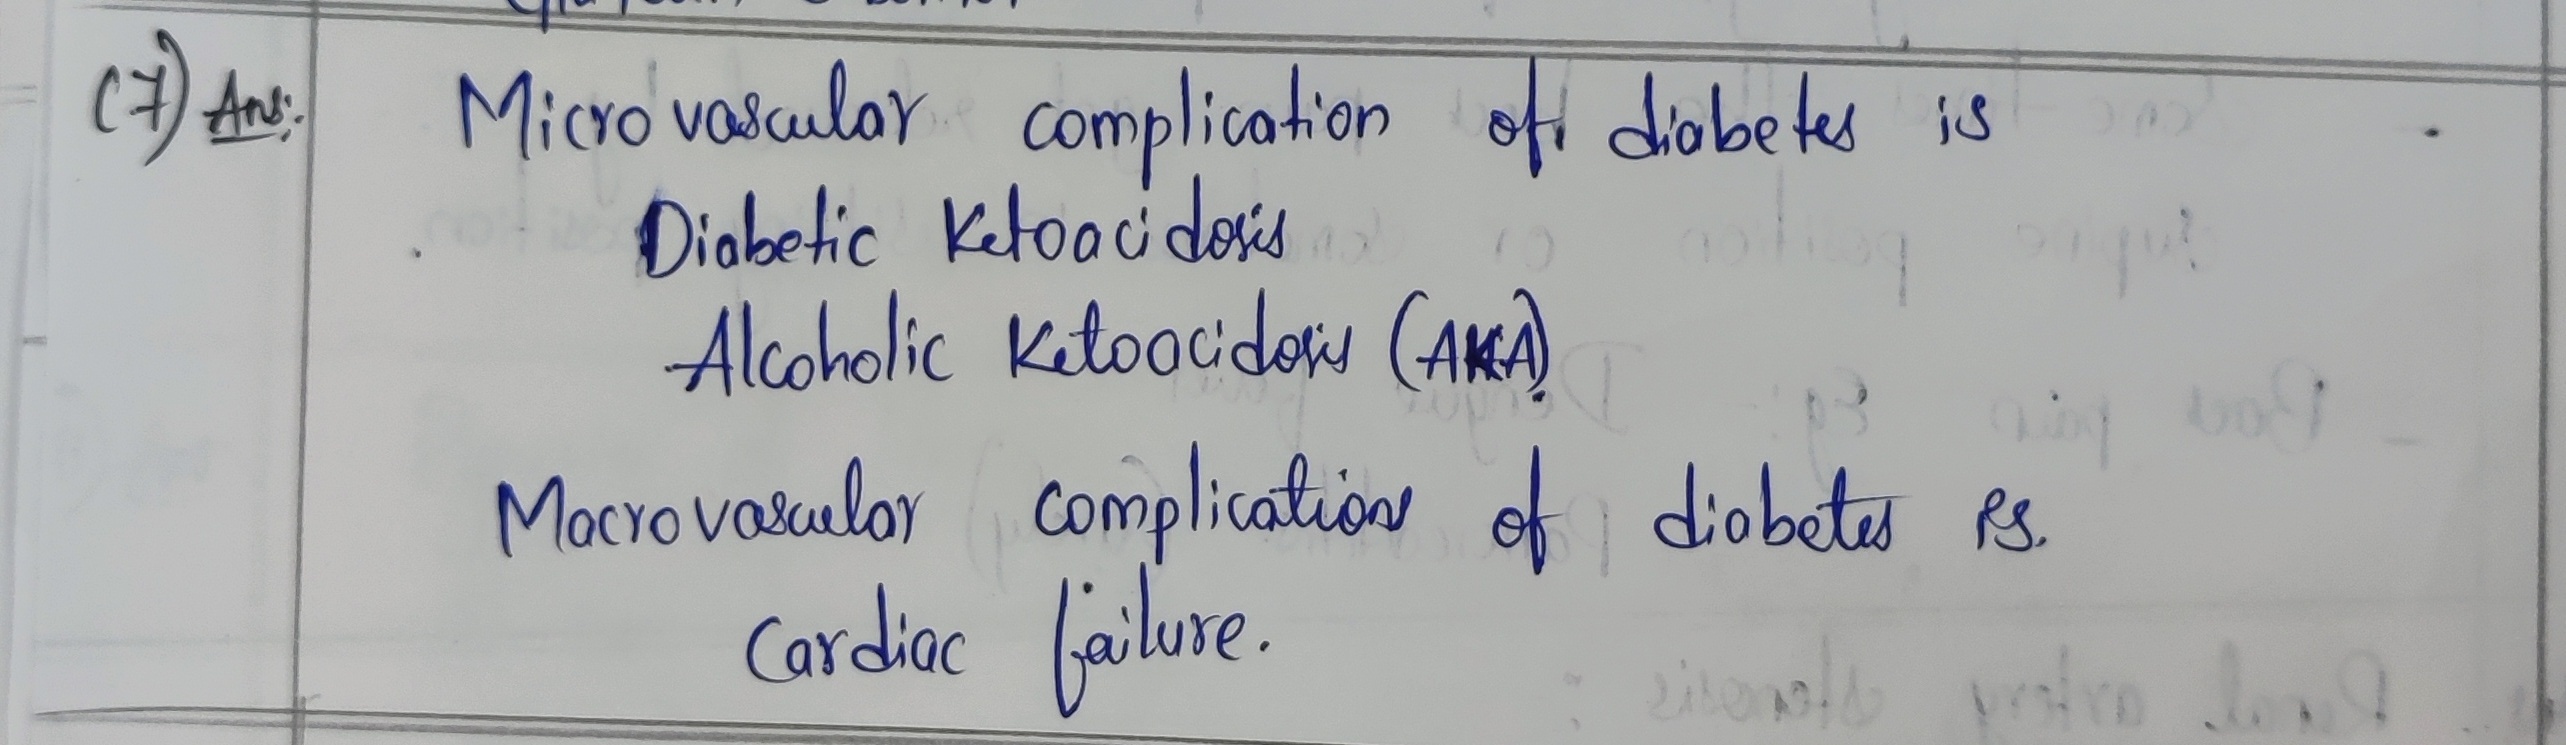 (7) Ans:- Microvascular complication of diabetes is
Diabetic Ketoacidosis
Alcoholic Ketoacidosis (AKA).
Macrovascular complications of diabetes is.
Cardiac failure.